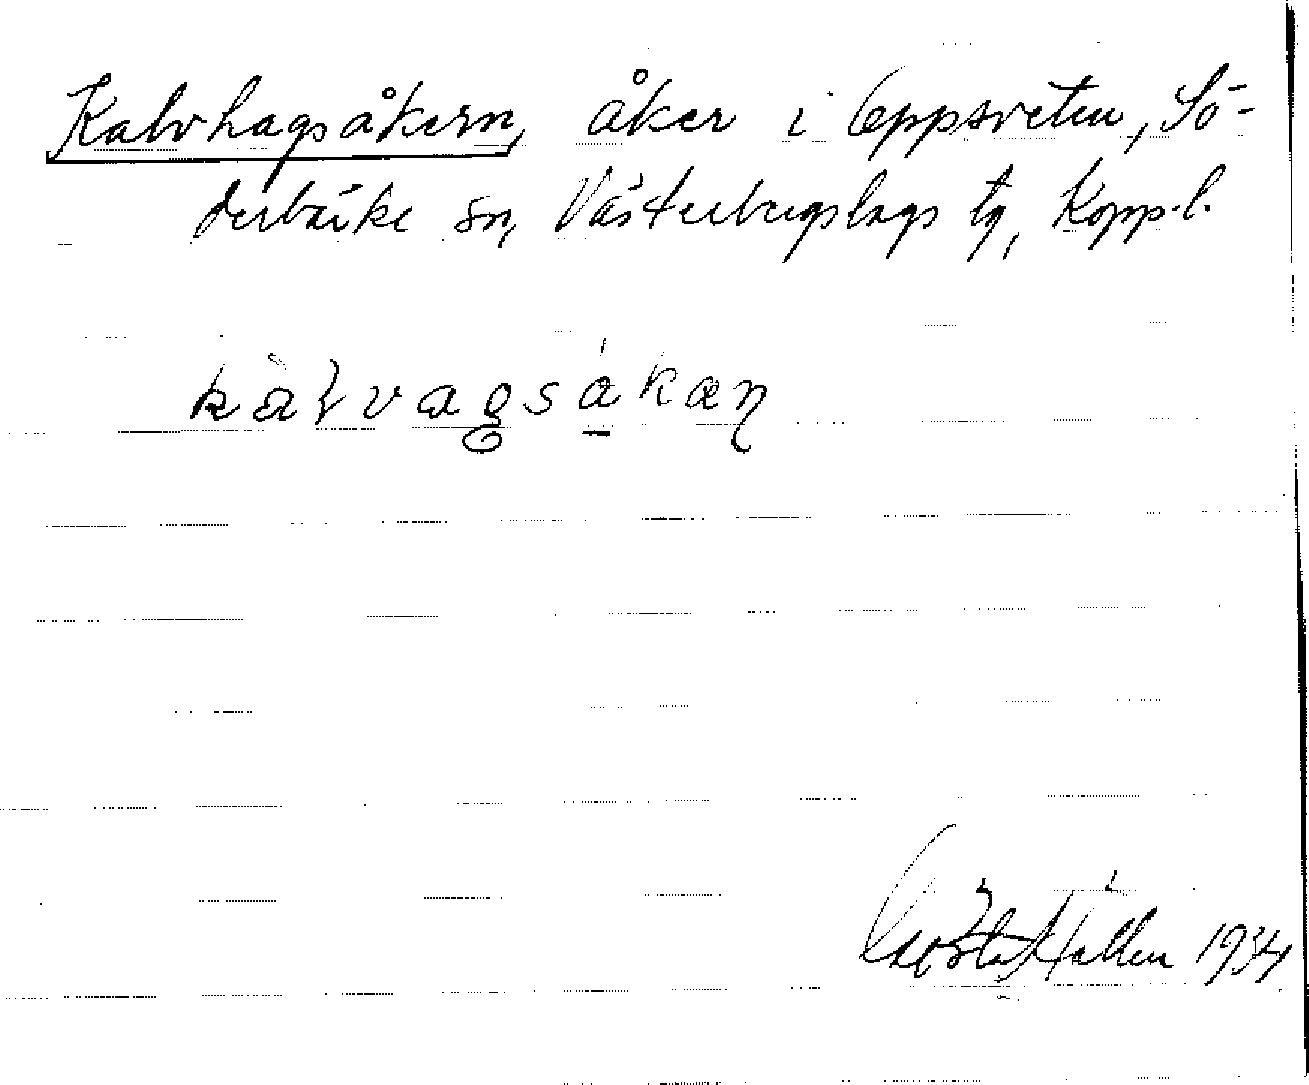 Kalvhagsåkern, åker i Eppsveten, Sö-
derbärke sn, Västerbergslags tg, Kopp. l.
kàɫvagsákaɳ
Gösta Hallén 1934